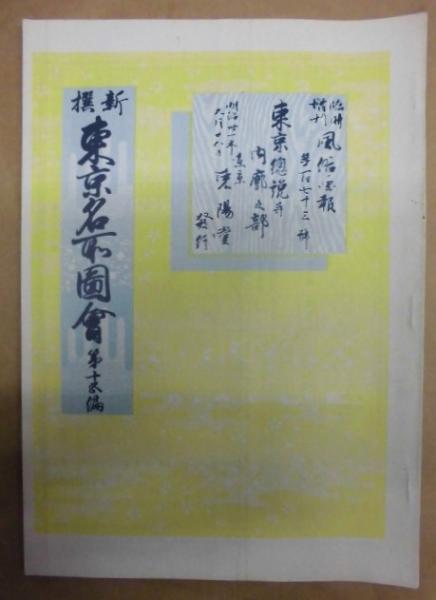 新撰
東京名所圖會
第十編
臨時
増刊
風俗画報
第百七十三號
東京總説并
内廓之部
明治卅一年
九月廿八日
東京
東陽堂
發行